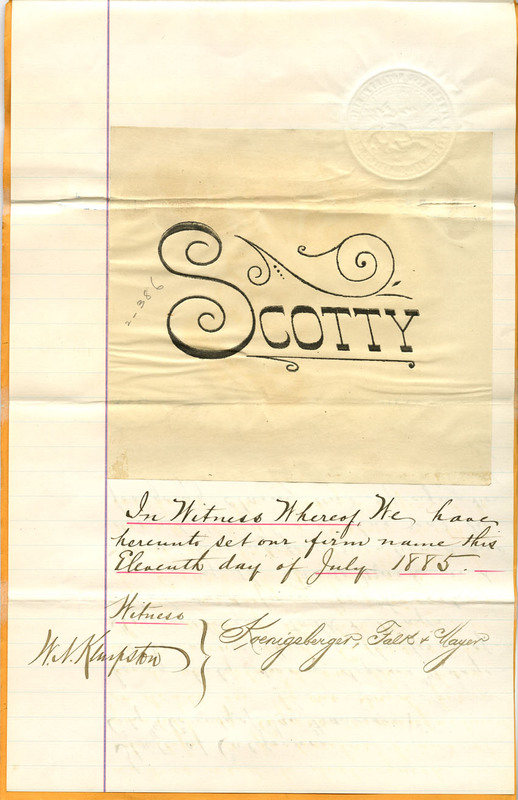 SCOTTY
2-386
In Witness Whereof, We have
hereunto set our firm name this
Eleventh day of July 1885.
Witness
W. N. Kimpston
Koenigsberger, Falk & Mayer